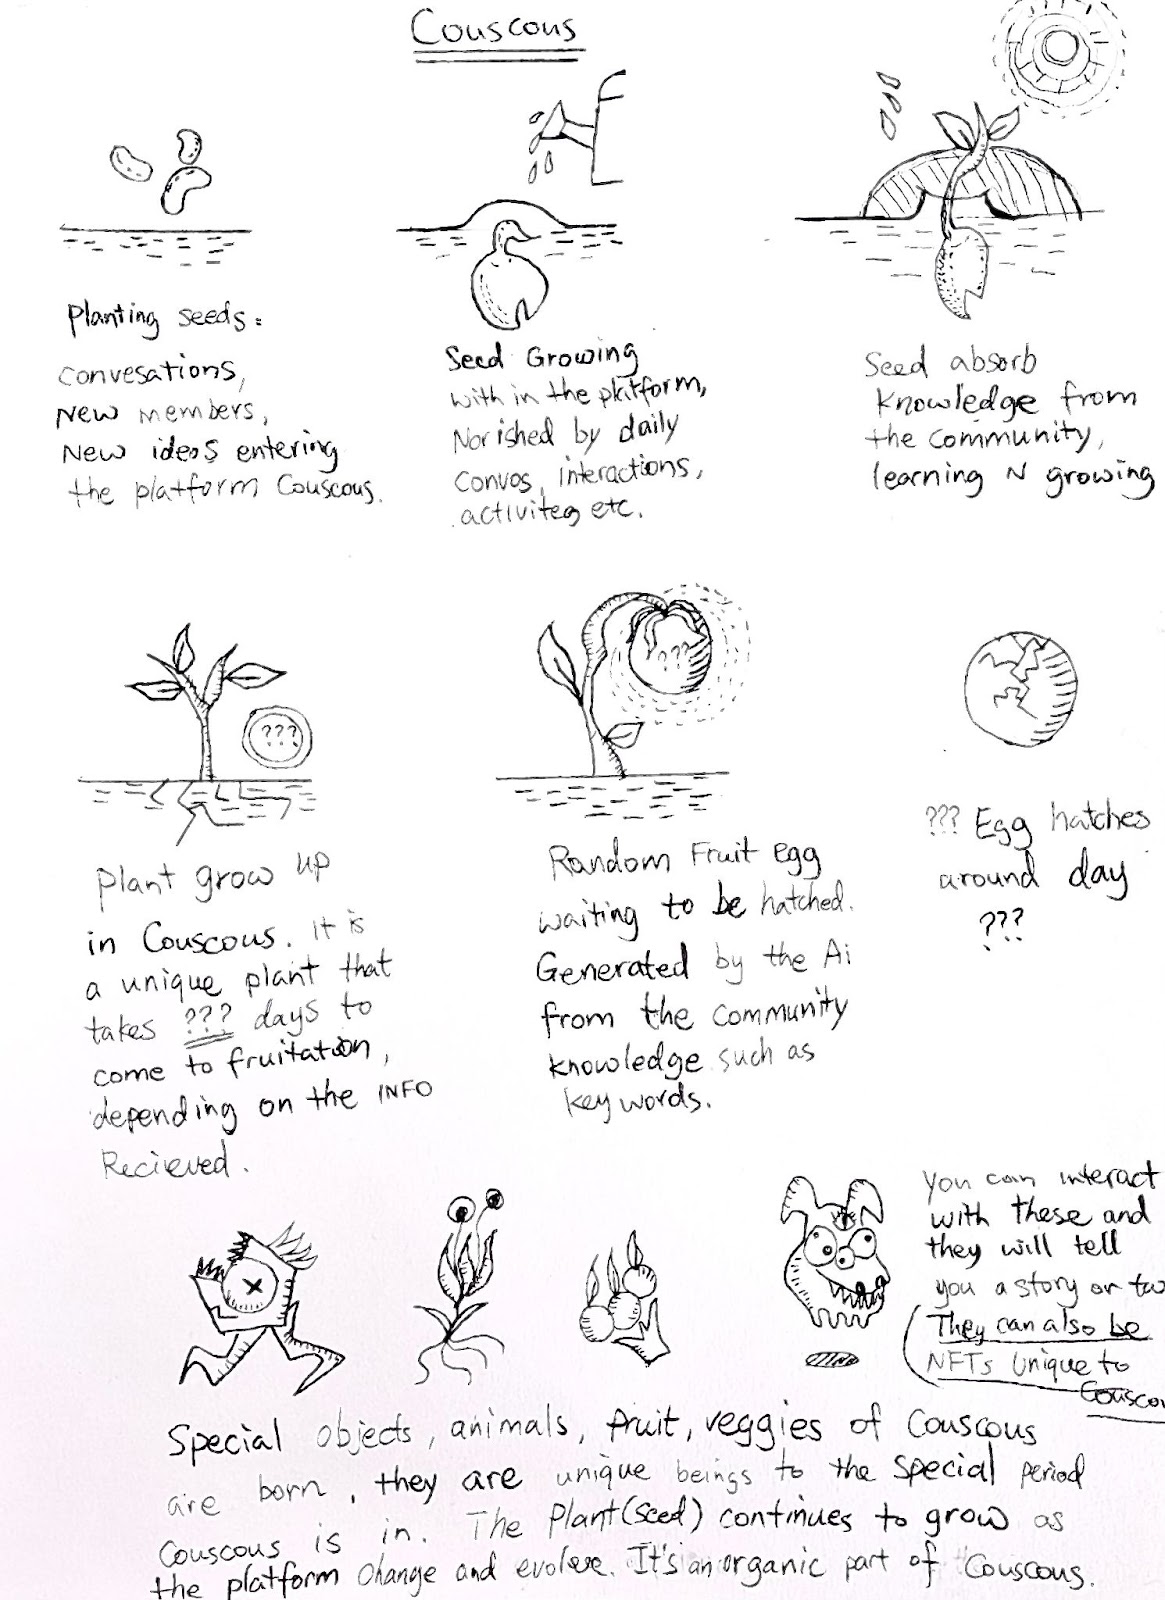 Couscous
Planting seeds:
convesations,
New members,
New ideas entering
the platform Couscous.
Seed Growing
with in the platform,
Norished by daily
convos, interactions,
activites etc.
Seed absorb
knowledge from
the community,
learning N growing
???
Plant grow up
in Couscous. It is
a unique plant that
takes ??? days to
come to fruitation,
depending on the INFO
Recieved.
???
Random Fruit egg
waiting to be hatched.
Generated by the Ai
from the community
knowledge such as
key words.
??? Egg hatches
around day
???
You can interact
with these and
they will tell
you a story or two
They can also be
NFTs Unique to
Couscou
Special objects, animals, fruit, veggies of Couscous
are born, they are unique beings to the special period
Couscous is in. The Plant(seed) continues to grow as
the platform change and evolve. It's an organic part of Couscous.